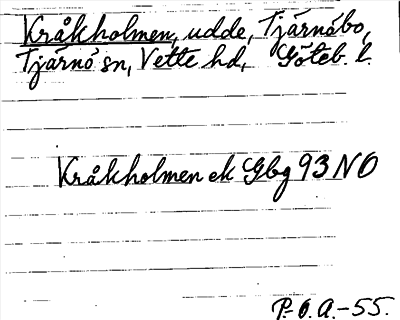 Kråkholmen, udde, Tjärnöbo,
Tjärnö sn, Vette hd, Göteb. l.
Kråkholmen ek Gbg 93 NO
P.-O. A.-55.